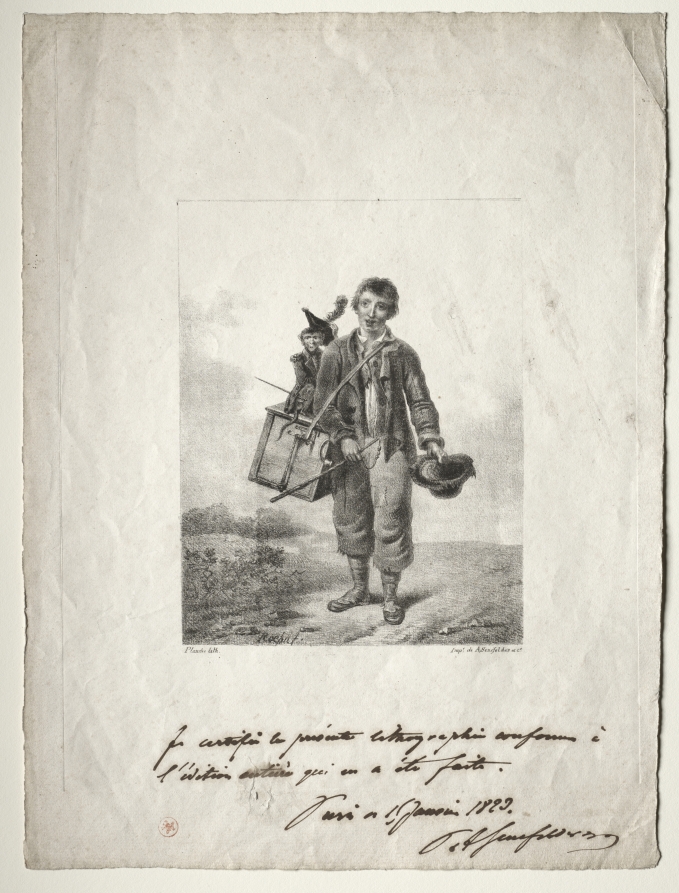 lith.
Imp. de A. Senefelder & Cᵉ
Je certifie la présente lithographie conforme à
l'édition entière qui en a été faite.
Paris 15 Janvier 1823.
Senefelder